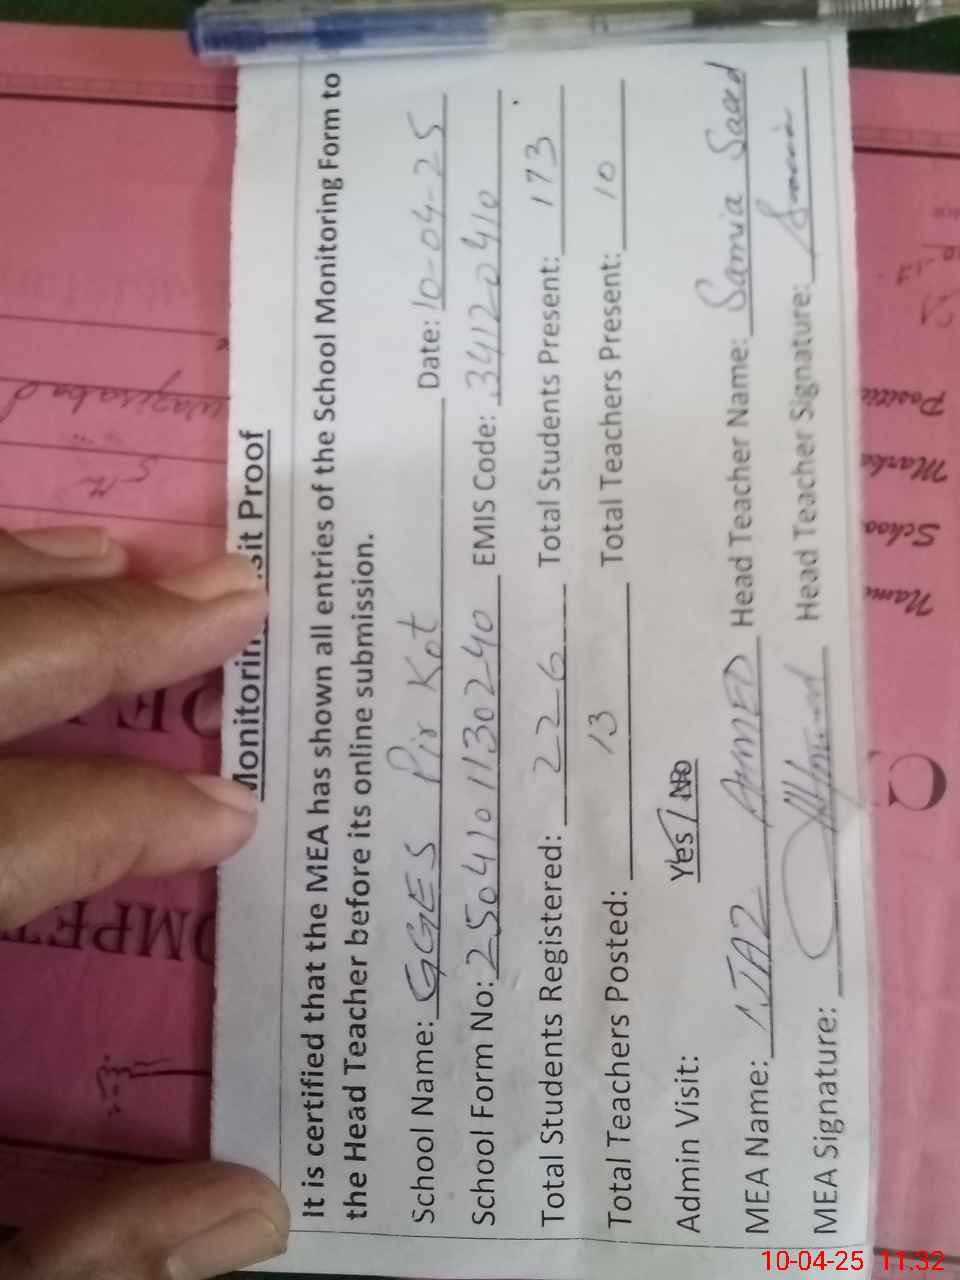 Monitoring Visit Proof
It is certified that the MEA has shown all entries of the School Monitoring Form to
the Head Teacher before its online submission.
School Name: GGES Pir Kot Date: 10-04-25
School Form No: 2504101130240 EMIS Code: 34120410
Total Students Registered: 226 Total Students Present: 173
Total Teachers Posted: 13 Total Teachers Present: 10
Admin Visit: Yes / No
MEA Name: NJAZ AHMED Head Teacher Name: Samia Saeed
MEA Signature: Head Teacher Signature:
wazirabad
Name
School
Marks
Position
OMPET
10-04-25 11:32